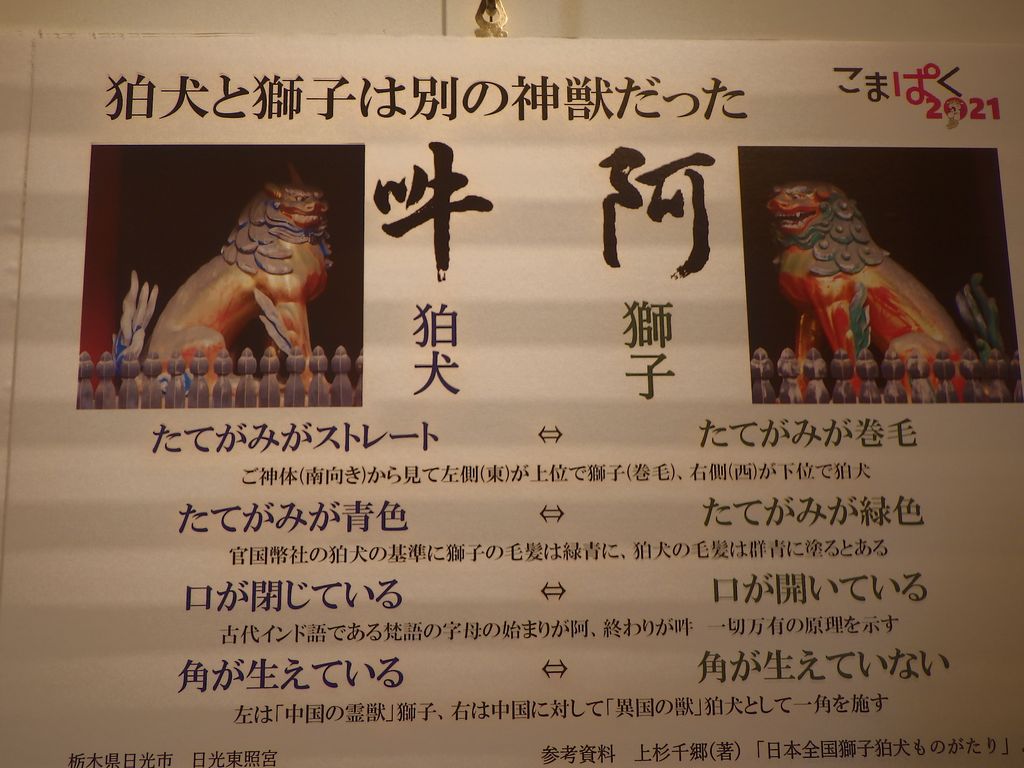 狛犬と獅子は別の神獣だった
こまぱく
2021
吽 阿
狛犬 獅子
たてがみがストレート ⇔ たてがみが巻毛
ご神体(南向き)から見て左側(東)が上位で獅子(巻毛)、右側(西)が下位で狛犬
たてがみが青色 ⇔ たてがみが緑色
官国幣社の狛犬の基準に獅子の毛髪は緑青に、狛犬の毛髪は群青に塗るとある
口が閉じている ⇔ 口が開いている
古代インド語である梵語の字母の始まりが阿、終わりが吽 一切万有の原理を示す
角が生えている ⇔ 角が生えていない
左は「中国の霊獣」獅子、右は中国に対して「異国の獣」狛犬として一角を施す
栃木県日光市 日光東照宮 参考資料 上杉千郷(著)「日本全国獅子狛犬ものがたり」